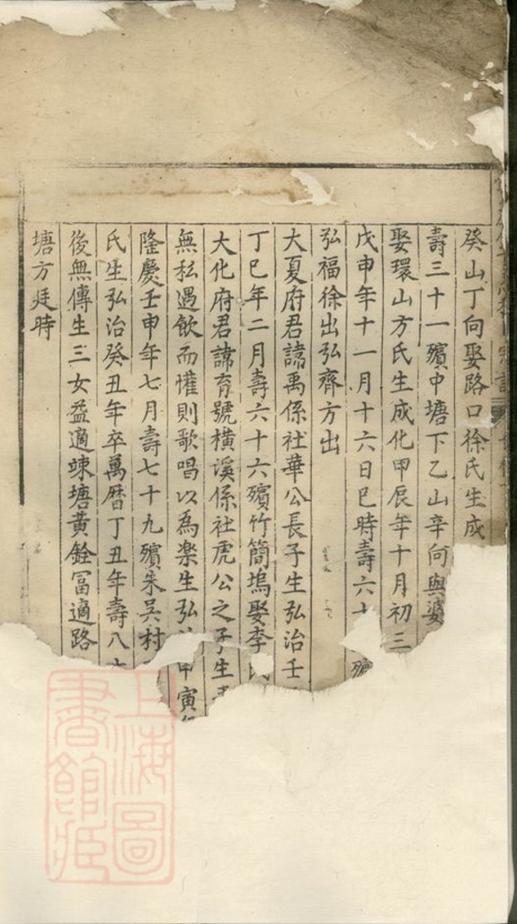 癸山丁向娶路口徐氏生成
壽三十一殯中塘下乙山辛向與婆
娶環山方氏生成化甲辰年十月初三
戊申年十一月十六日巳時壽六十 殯
弘福徐出弘齊方出
大夏府君諱禹係社華公長子生弘治壬
丁巳年二月壽六十六殯竹簡塢娶李氏
大化府君諱育號橫溪係社虎公之子生
無私遇飲而懽則歌唱以為楽生弘治甲寅
隆慶壬申年七月壽七十九殯朱吳村
氏生弘治癸丑年卒萬曆丁丑年壽八十
後無傳生三女益適竦塘黃銓冨適路
塘方廷時
上海圖書館藏